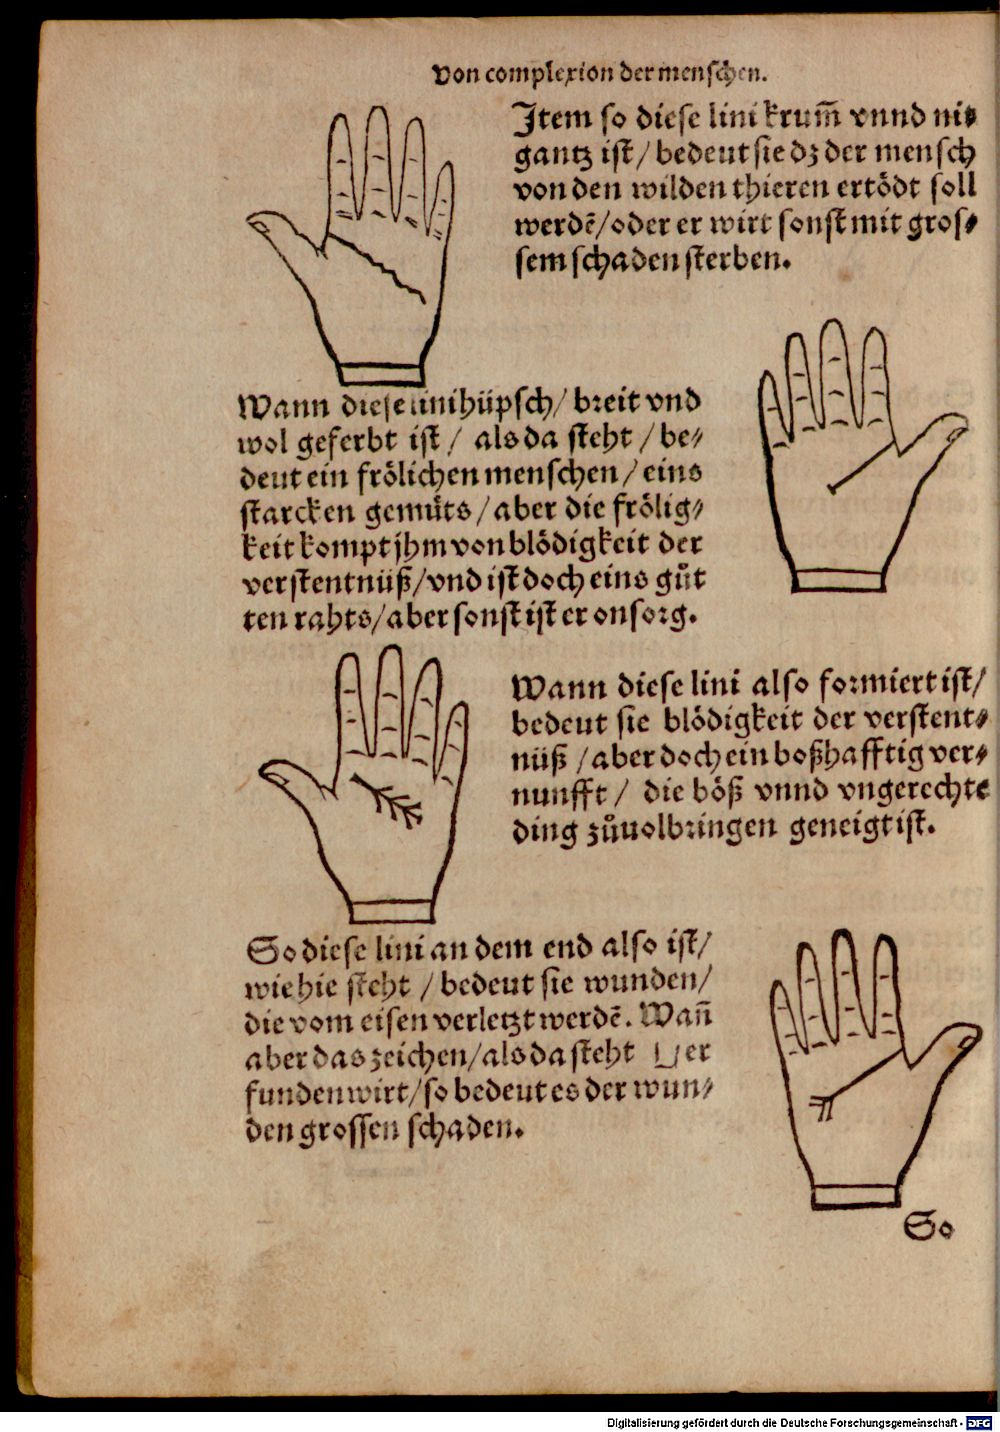 Von complexion der menschen.
Item so diese lini krum̃ vnnd nit
gantz ist/ bedeut sie dz der mensch
von den wilden thieren ertödt soll
werdẽ/oder er wirt sonst mit gros⸗
sem schaden sterben.
Wann diese lini hüpsch/ breit vnd
wol geferbt ist/ als da steht /be⸗
deut ein frölichen menschen/ eins
starcken gemüts/aber die frölig⸗
keit kompt jhm von blödigkeit der
verstentnüß/vnd ist doch eins gůt
ten rahts/aber sonst ist er onsorg.
Wann diese lini also formiert ist/
bedeut sie blödigkeit der verstent⸗
nüß /aber doch ein boßhafftig ver⸗
nunfft/ die böß vnnd vngerechte
ding zůuolbringen geneigt ist.
So diese lini an dem end also ist/
wie hie steht /bedeut sie wunden/
die vom eisen verletzt werdẽ. Wañ
aber das zeichen/als da steht er
funden wirt/so bedeut es der wun⸗
den grossen schaden.
So
Digitalisierung gefördert durch die Deutsche Forschungsgemeinschaft - DFG